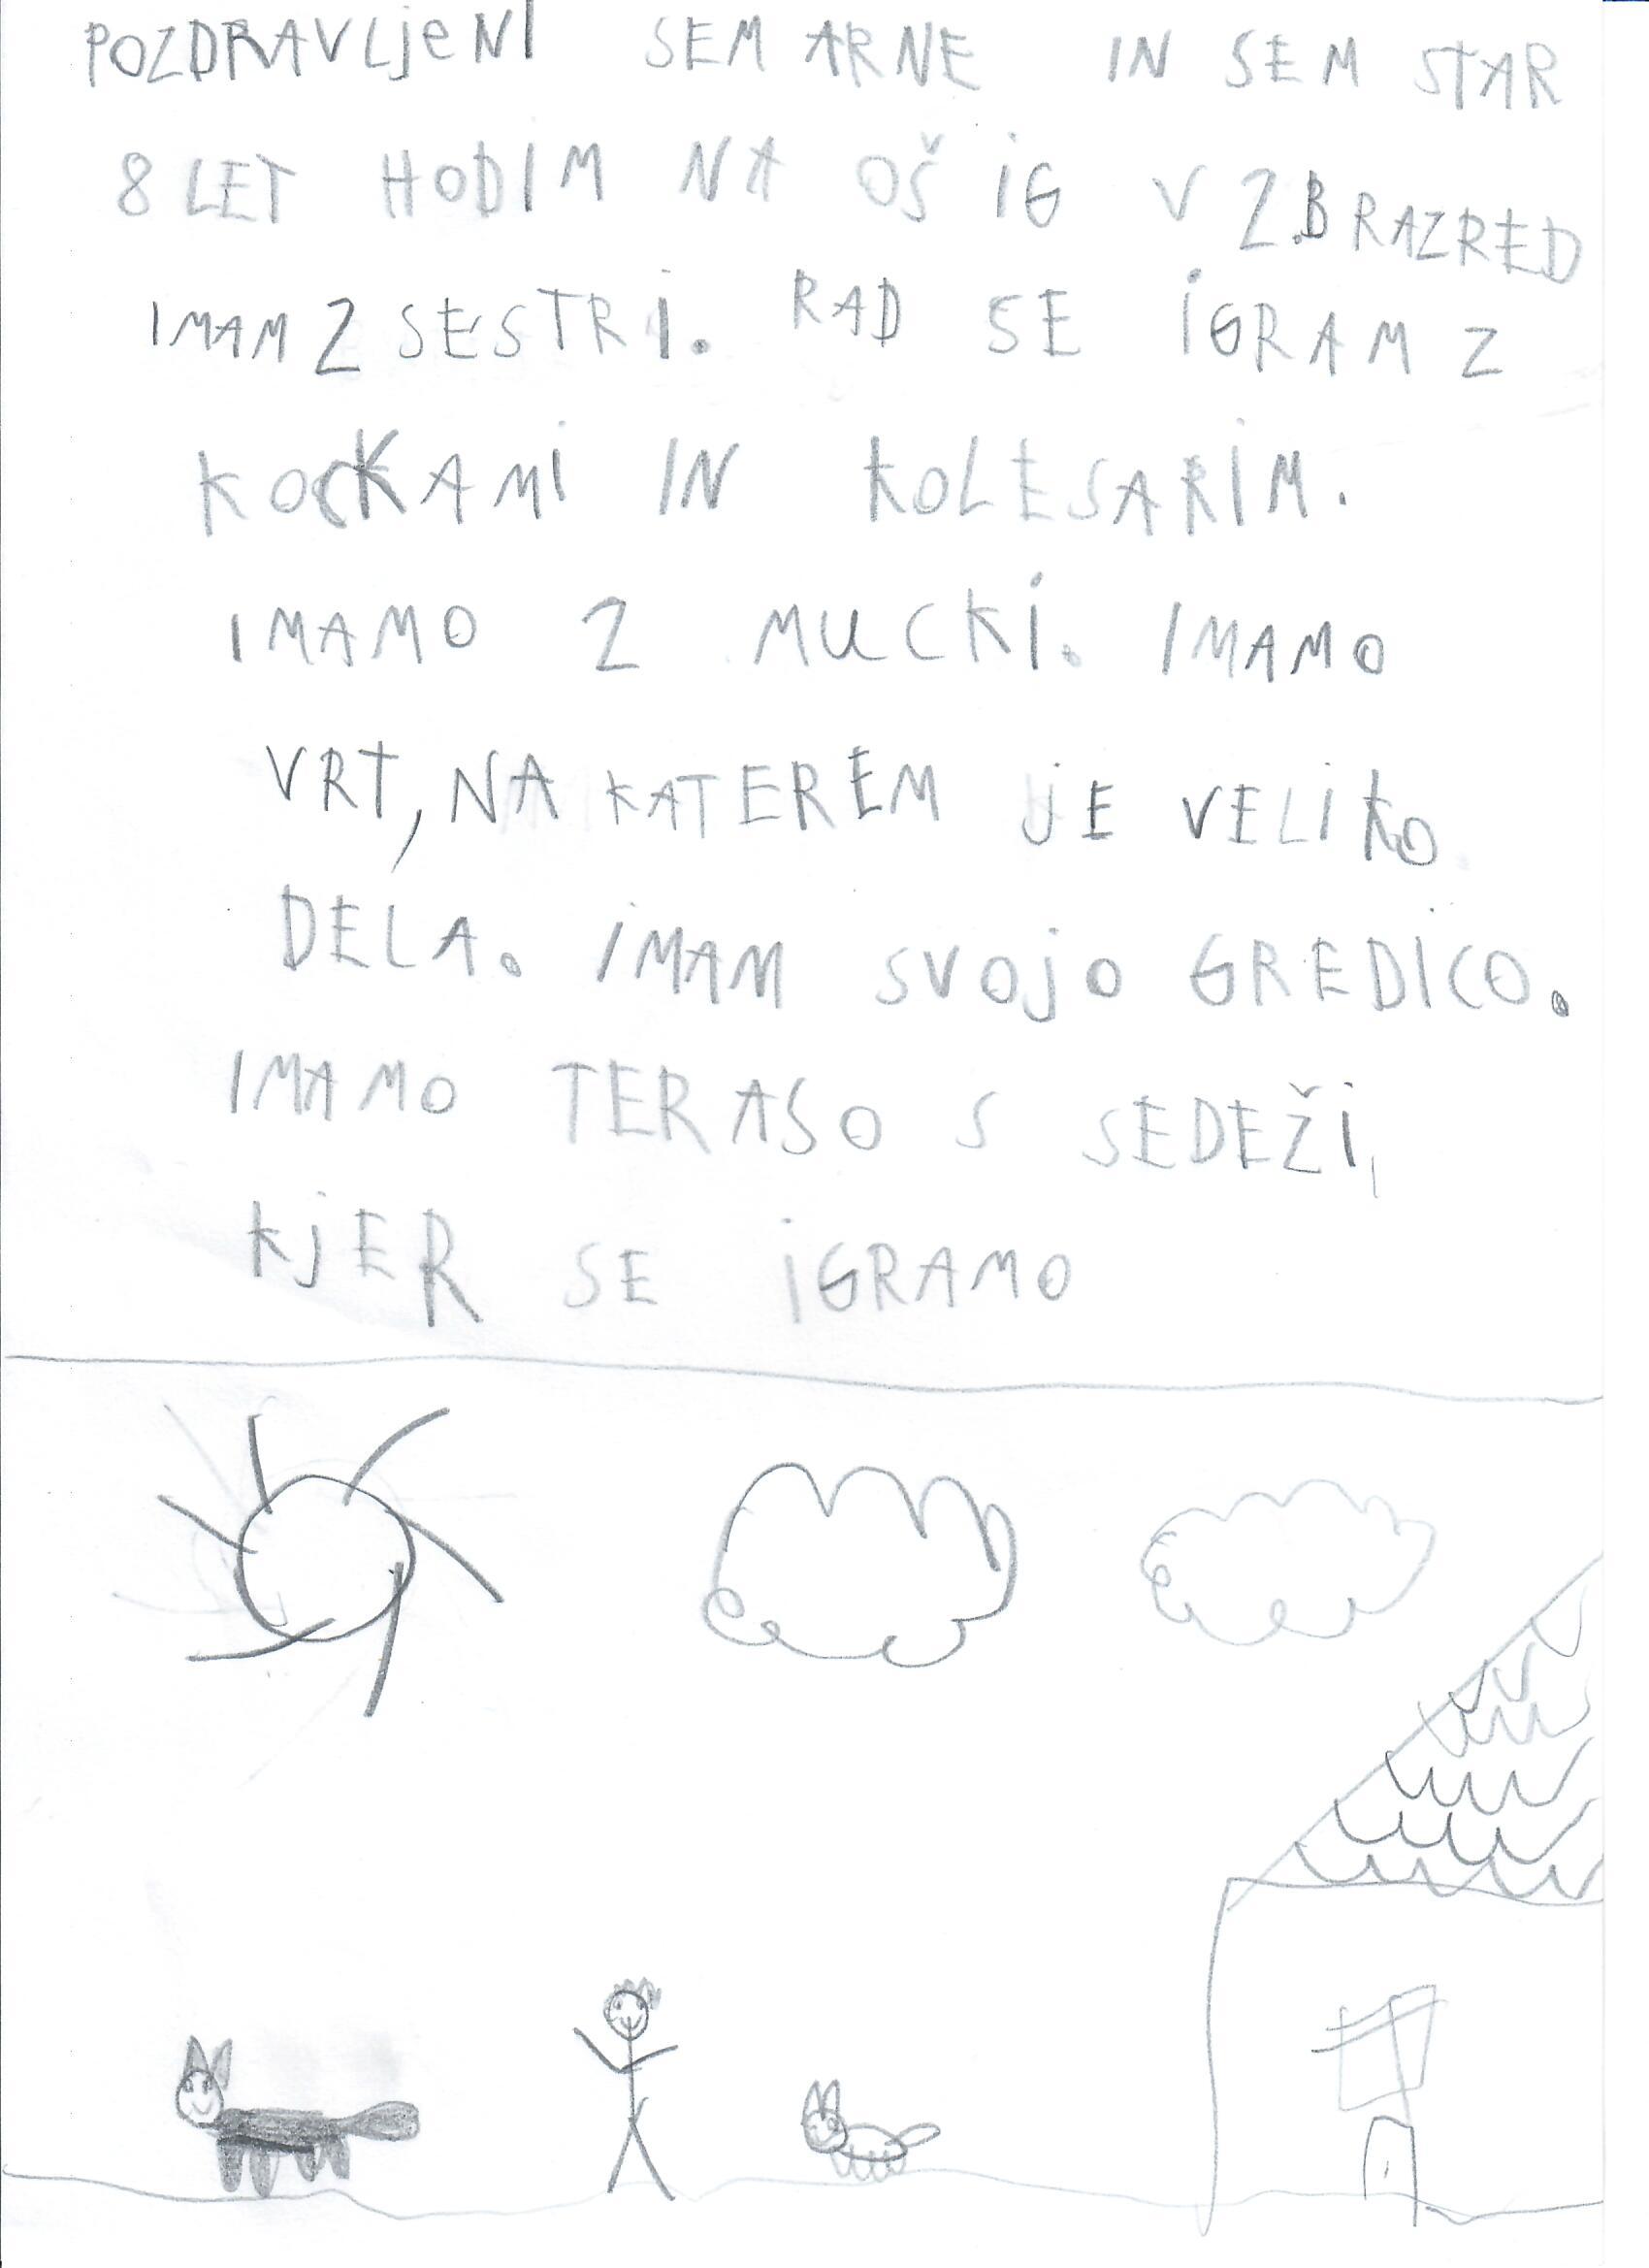 POZDRAVLjeNI SEM ARNE IN SEM STAR
8 LET HODIM NA OŠ iG V 2.B RAZRED
IMAM 2 SESTRI. RAD SE iGRAM Z
KOCKAMI IN KOLESARIM.
IMAMO 2 MUCKI. IMAMO
VRT, NA KATEREM jE VELIKO
DELA. IMAM SVOjO GREDICO.
IMAMO TERASO S SEDEŽI,
KjER SE iGRAMO